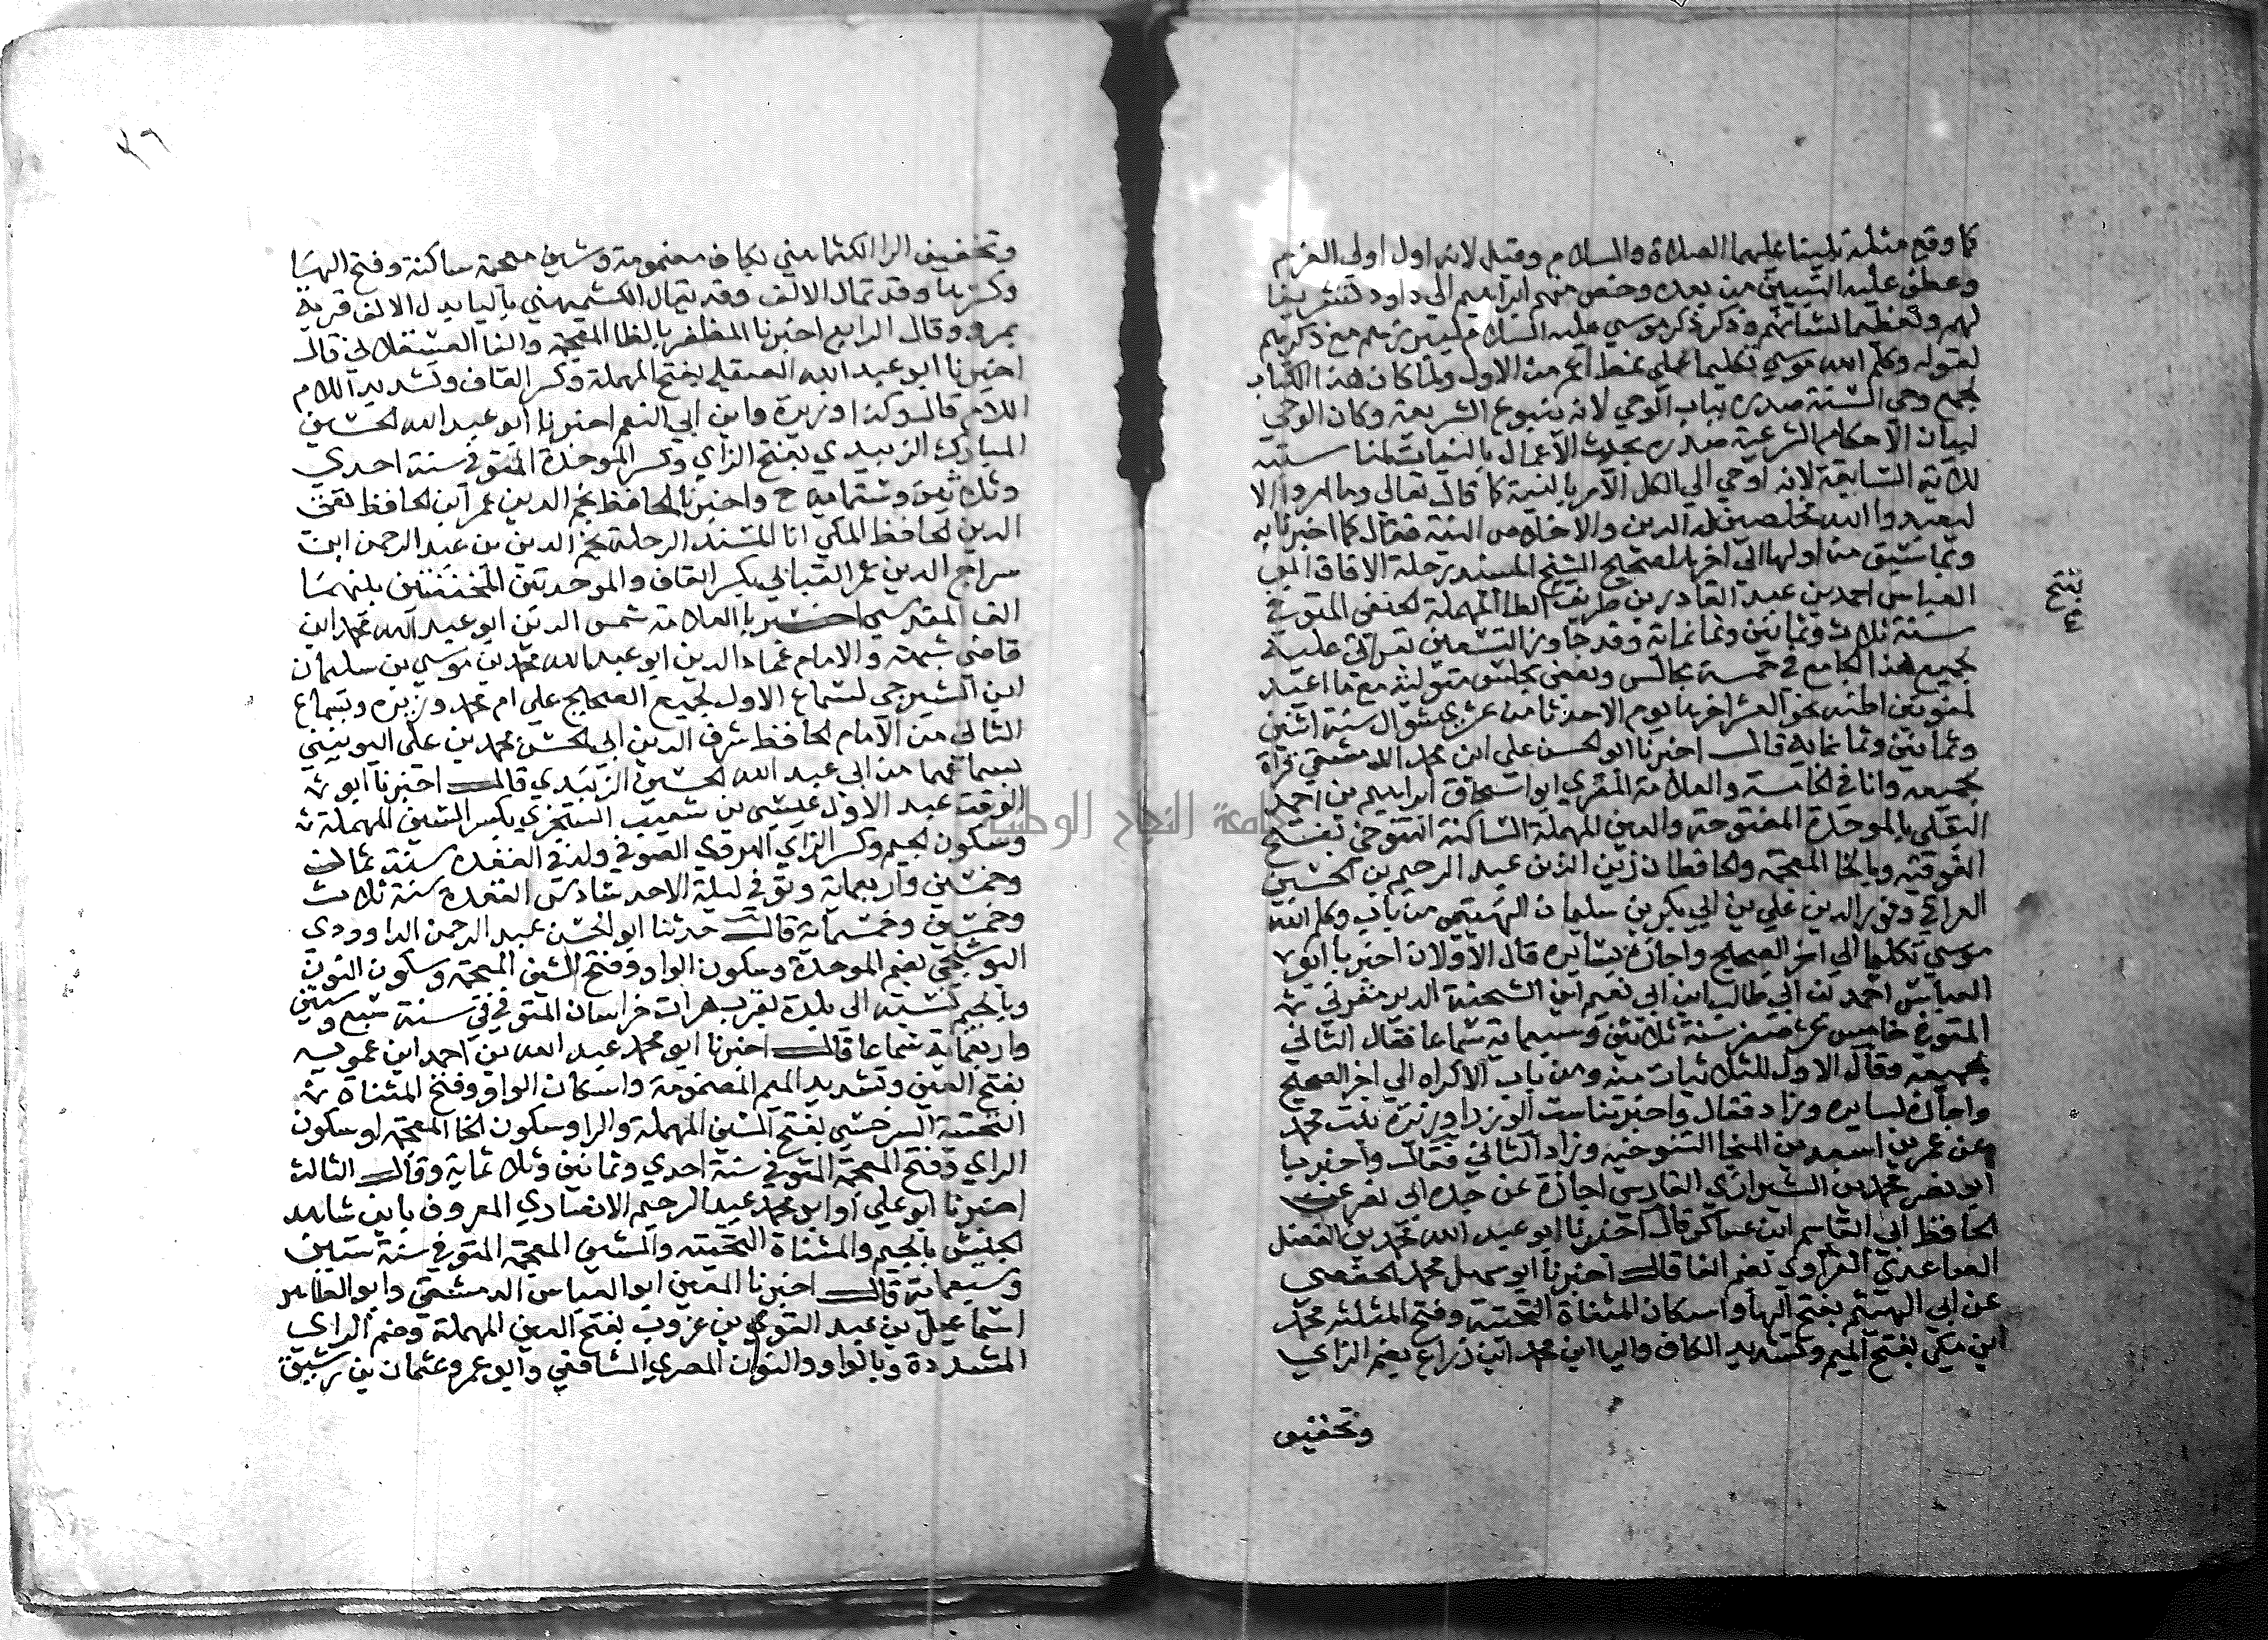 كما وقع مثله لنبينا عليهما الصلاة والسلام وقيل لانه اول اولي العزم
وعطف عليه النبيين من بعده وخص منهم ابراهيم الي داود تشريفا
لهم وتعظيما لشانهم وذكر موسي عليه السلام
لقوله وكلم الله موسي تكليما علي نمط اعم من الاول ولما كان هذا الكتاب
لجمع وحي السنة صدره بباب الوحي لانه ينبوع الشريعة وكان الوحي
لبيان الاحكام الشرعية صدره بحديث الاعمال بالنيات
للاية السابقة لانه اوحي الي الكل الامر بالنية كما قال تعالي وما امروا الا
ليعبدوا الله مخلصين له الدين والاخلاص النية فقال كما اخبرنا به
وبما سبق من اولها الي اخر الصحيح الشيخ المسند رحلة الافاق ابي
العباس احمد بن عبد القادر بن طريف الطا المهملة الحنفي المتوفي
بفتح
سنة ثلاث وثمانين وثمانماية وقد جاوز التسعين بقراتي عليه
لجميع هذا الجامع في خمسة مجالس وبعض مجلس متوالية مع ما اعيد
لمفوتين اظنه نحو العشر اخرها يوم الاحد ثامن عشري شوال سنة اثنين
وثمانين وثمانماية قال اخبرنا ابو الحسن علي ابن محمد الدمشقي قراة
لجميعه وانا في الخامسة والعلامة المقري ابو اسحاق ابراهيم بن احمد
البعلي بالموحدة المفتوحة والعين المهملة الساكنة التنوخي بفتح
الفوقية وبالخا المعجمة والحافظان زين الدين عبد الرحيم بن الحسين
العراقي ونور الدين علي بن ابي بكر بن سليمان الهيتمي من باب وكلم الله
موسي تكليما الي اخر الصحيح واجازة بسايره قال الاولان اخبرنا ابو
العباس احمد بن ابي طالب ابن ابي نعيم ابن الشحنة الدير مقرني
المتوفي خامس عشر صفر سنة ثلاثين وسبعماية سماعا فقال الثاني
لجميعه وقال الاول للثلاثيات منه ومن باب الاكراه الي اخر الصحيح
واجازة لسايره وزاد فقال واخبرتنا ست الوزرا وزيرة بنت محمد
عن عمر بن اسعد بن المنجا التنوخية وزاد الثاني فقال واخبرنا
ابو نصر محمد بن الشيرازي الفارسي اجازة عن جده ابي نصر عن
الحافظ ابي القاسم ابن عساكر قال اخبرنا ابو عبد الله محمد بن الفضل
الصاعدي الفراوي بضم الفا قال اخبرنا ابو سهل محمد الحفصي
عن ابي الهيثم بفتح الها واسكان المثناة التحتية وفتح المثلثة محمد
ابن مكي بفتح الميم وتشديد الكاف واليا ابن محمد ابن زراع بضم الزاي
وتخفيف
٣٦
وتخفيف الرا الكشماهني بكاف مضمومة وشين معجمة ساكنة وفتح الها
وكسرها وقد تمال الالف وقد يقال الكشميهني باليا بدل الالف قرية
بمرو وقال الرابع اخبرنا المظفر بالظا المعجمة والفا العسقلاني قال
اخبرنا ابو عبد الله الصقلي بفتح المهملة وكسر القاف وتشديد اللام
اللام قال وكذا وزيرة وابن ابي النعم اخبرنا ابو عبد الله الحسين
المبارك الزبيدي بفتح الزاي وكسر الموحدة المتوفي سنة احدي
وثلاثين وستماية ح واخبرنا الحافظ نجم الدين عمر ابن الحافظ تقي
الدين الحافظ المكي انا المسند الرحلة نجم الدين بن عبد الرحمن ابن
سراج الدين عمر القبابي بكسر القاف والموحدتين المخففتين بينهما
الف المقدسي اخبرنا العلامة شمس الدين ابو عبد الله محمد ابن
قاضي شهبة والامام عماد الدين ابو عبد الله محمد بن موسي بن سليمان
ابن الشيرجي لسماع الاول لجميع الصحيح علي ام محمد وزيره وبسماع
الثاني من الامام الحافظ شرف الدين ابي الحسن محمد بن علي اليونيني
بسماعهما من ابي عبد الله الحسين الزبيدي قال اخبرنا ابو
الوقت عبد الاول عيسي بن شعيب السجزي بكسر السين المهملة
وسكون الجيم وكسر الزاي الهروي الصوفي ولد في القعده سنة ثمان
وخمسين واربعماية وتوفي ليلة الاحد سادس القعدة سنة ثلاث
وخمسين وخمسماية قال حدثنا ابو الحسن عبد الرحمن الداوودي
البوشنجي بضم الموحدة وسكون الواو وفتح الشين المعجمة وسكون النون
وبالجيم نسبته الي بلدة بقرب هراة خراسان المتوفي في سنة سبع وستين
واربعماية سماعا قال اخبرنا ابو محمد عبد الله بن احمد ابن عمويه
بفتح العين وتشديد الميم المضمومة واسكان الواو وفتح المثناة
التحتية السرخسي بفتح السين المهملة والرا وسكون الخا المعجمة او سكون
الراي وفتح المعجمة المتوفي سنة احدي وثمانين وثلاثماية وقال الثالث
اخبرنا ابو علي او ابو محمد عبد الرحيم الانصاري المعروف بابن شاهد
الجيش بالجيم والمثناة التحتية والشين المعجمة المتوفي سنة ستين
وسبعماية قال اخبرنا المعين ابو العباس الدمشقي وابو الطاهر
اسماعيل بن عبد القوي بن عزون بفتح العين المهملة وضم الزاي
المشددة وبالواو والنون المصري الشافعي وابو عمرو عثمان بن رشيق